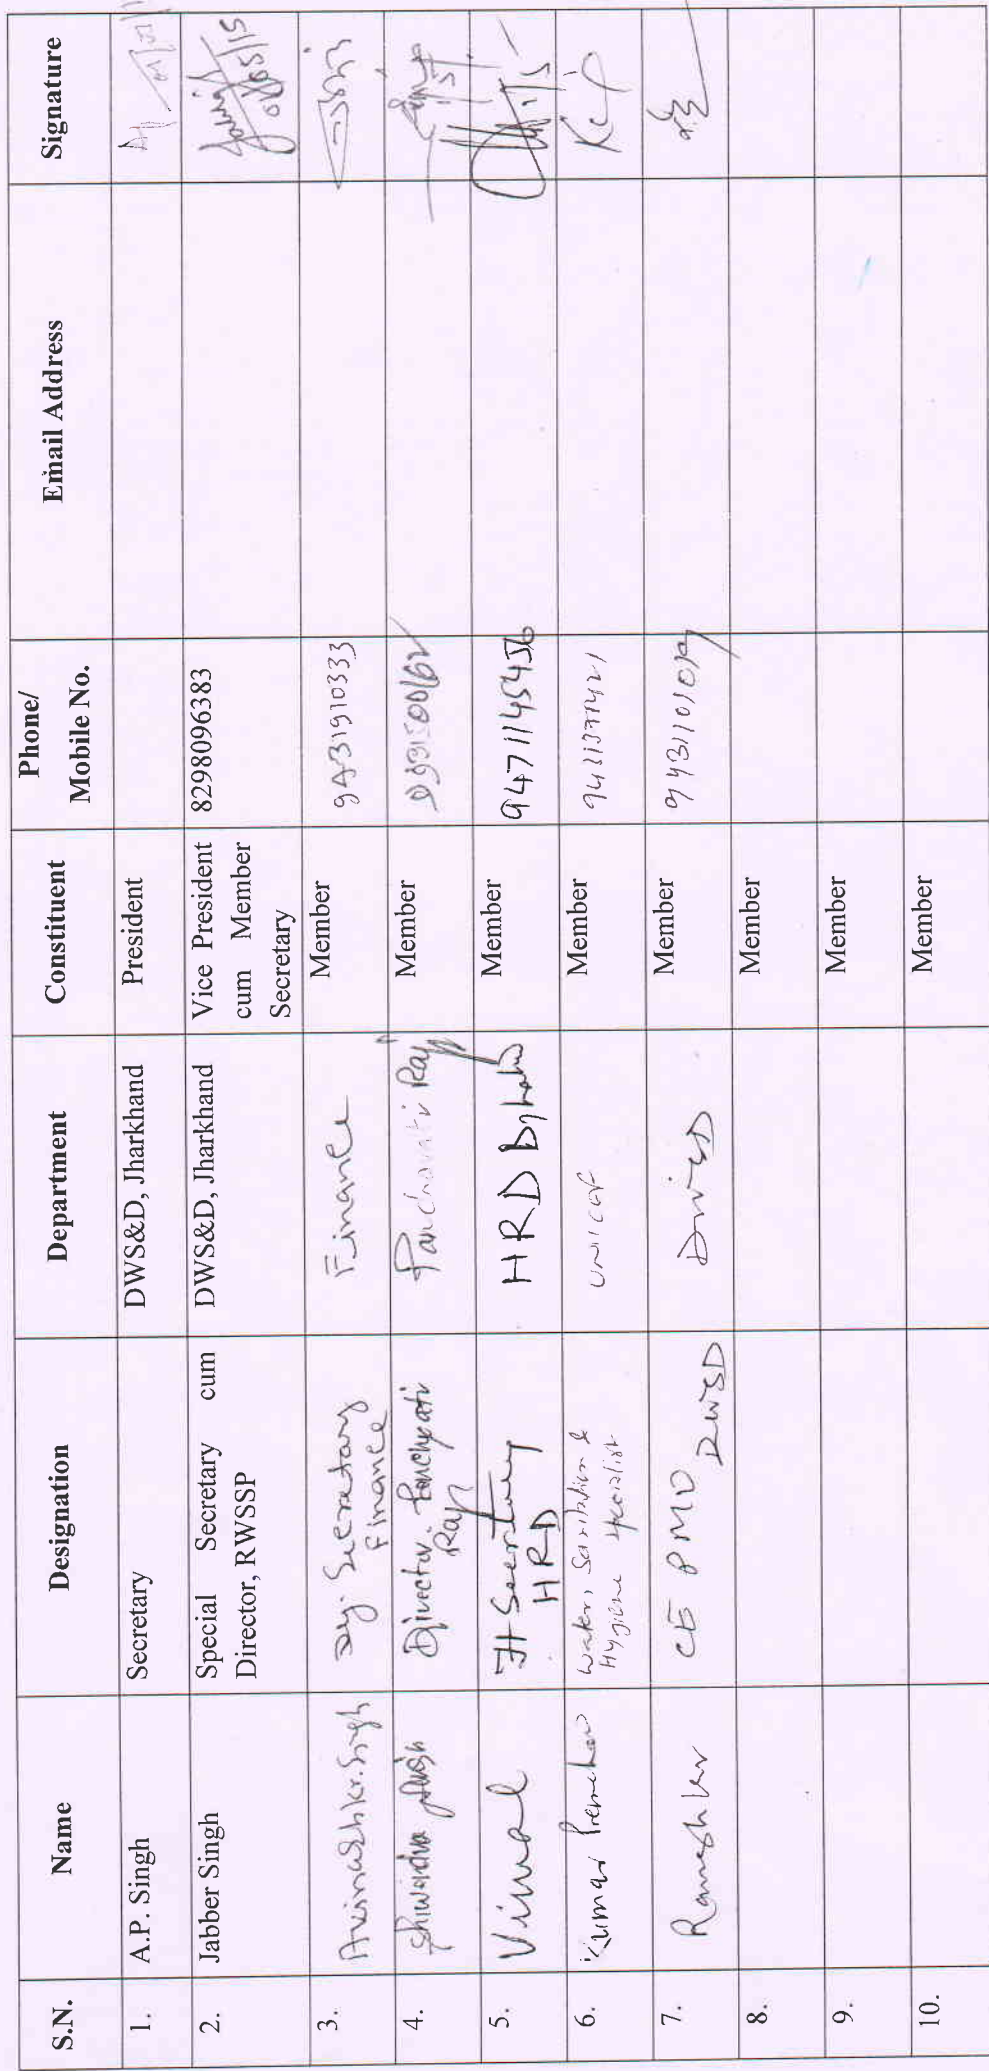 S.N. Name Designation Department Constituent Phone/ Mobile No. Email Address Signature
1. A.P. Singh Secretary DWS&D, Jharkhand President
2. Jabber Singh Special Secretary cum Director, RWSSP DWS&D, Jharkhand Vice President cum Member Secretary 8298096383 01/05/15
3. Avinash kr. Singh Dy. Secretary Finance Finance Member 9431910333
4. Singh Director Panchyati Raj Panchayati Raj Member
5. Vimal Jt Secretary HRD HRD Member 9471145456
6. Kumar Premchand Water, Sanitation & Hygiene specialist unicef Member
7. CE PMU DWSD DWSD Member
8. Member
9. Member
10. Member